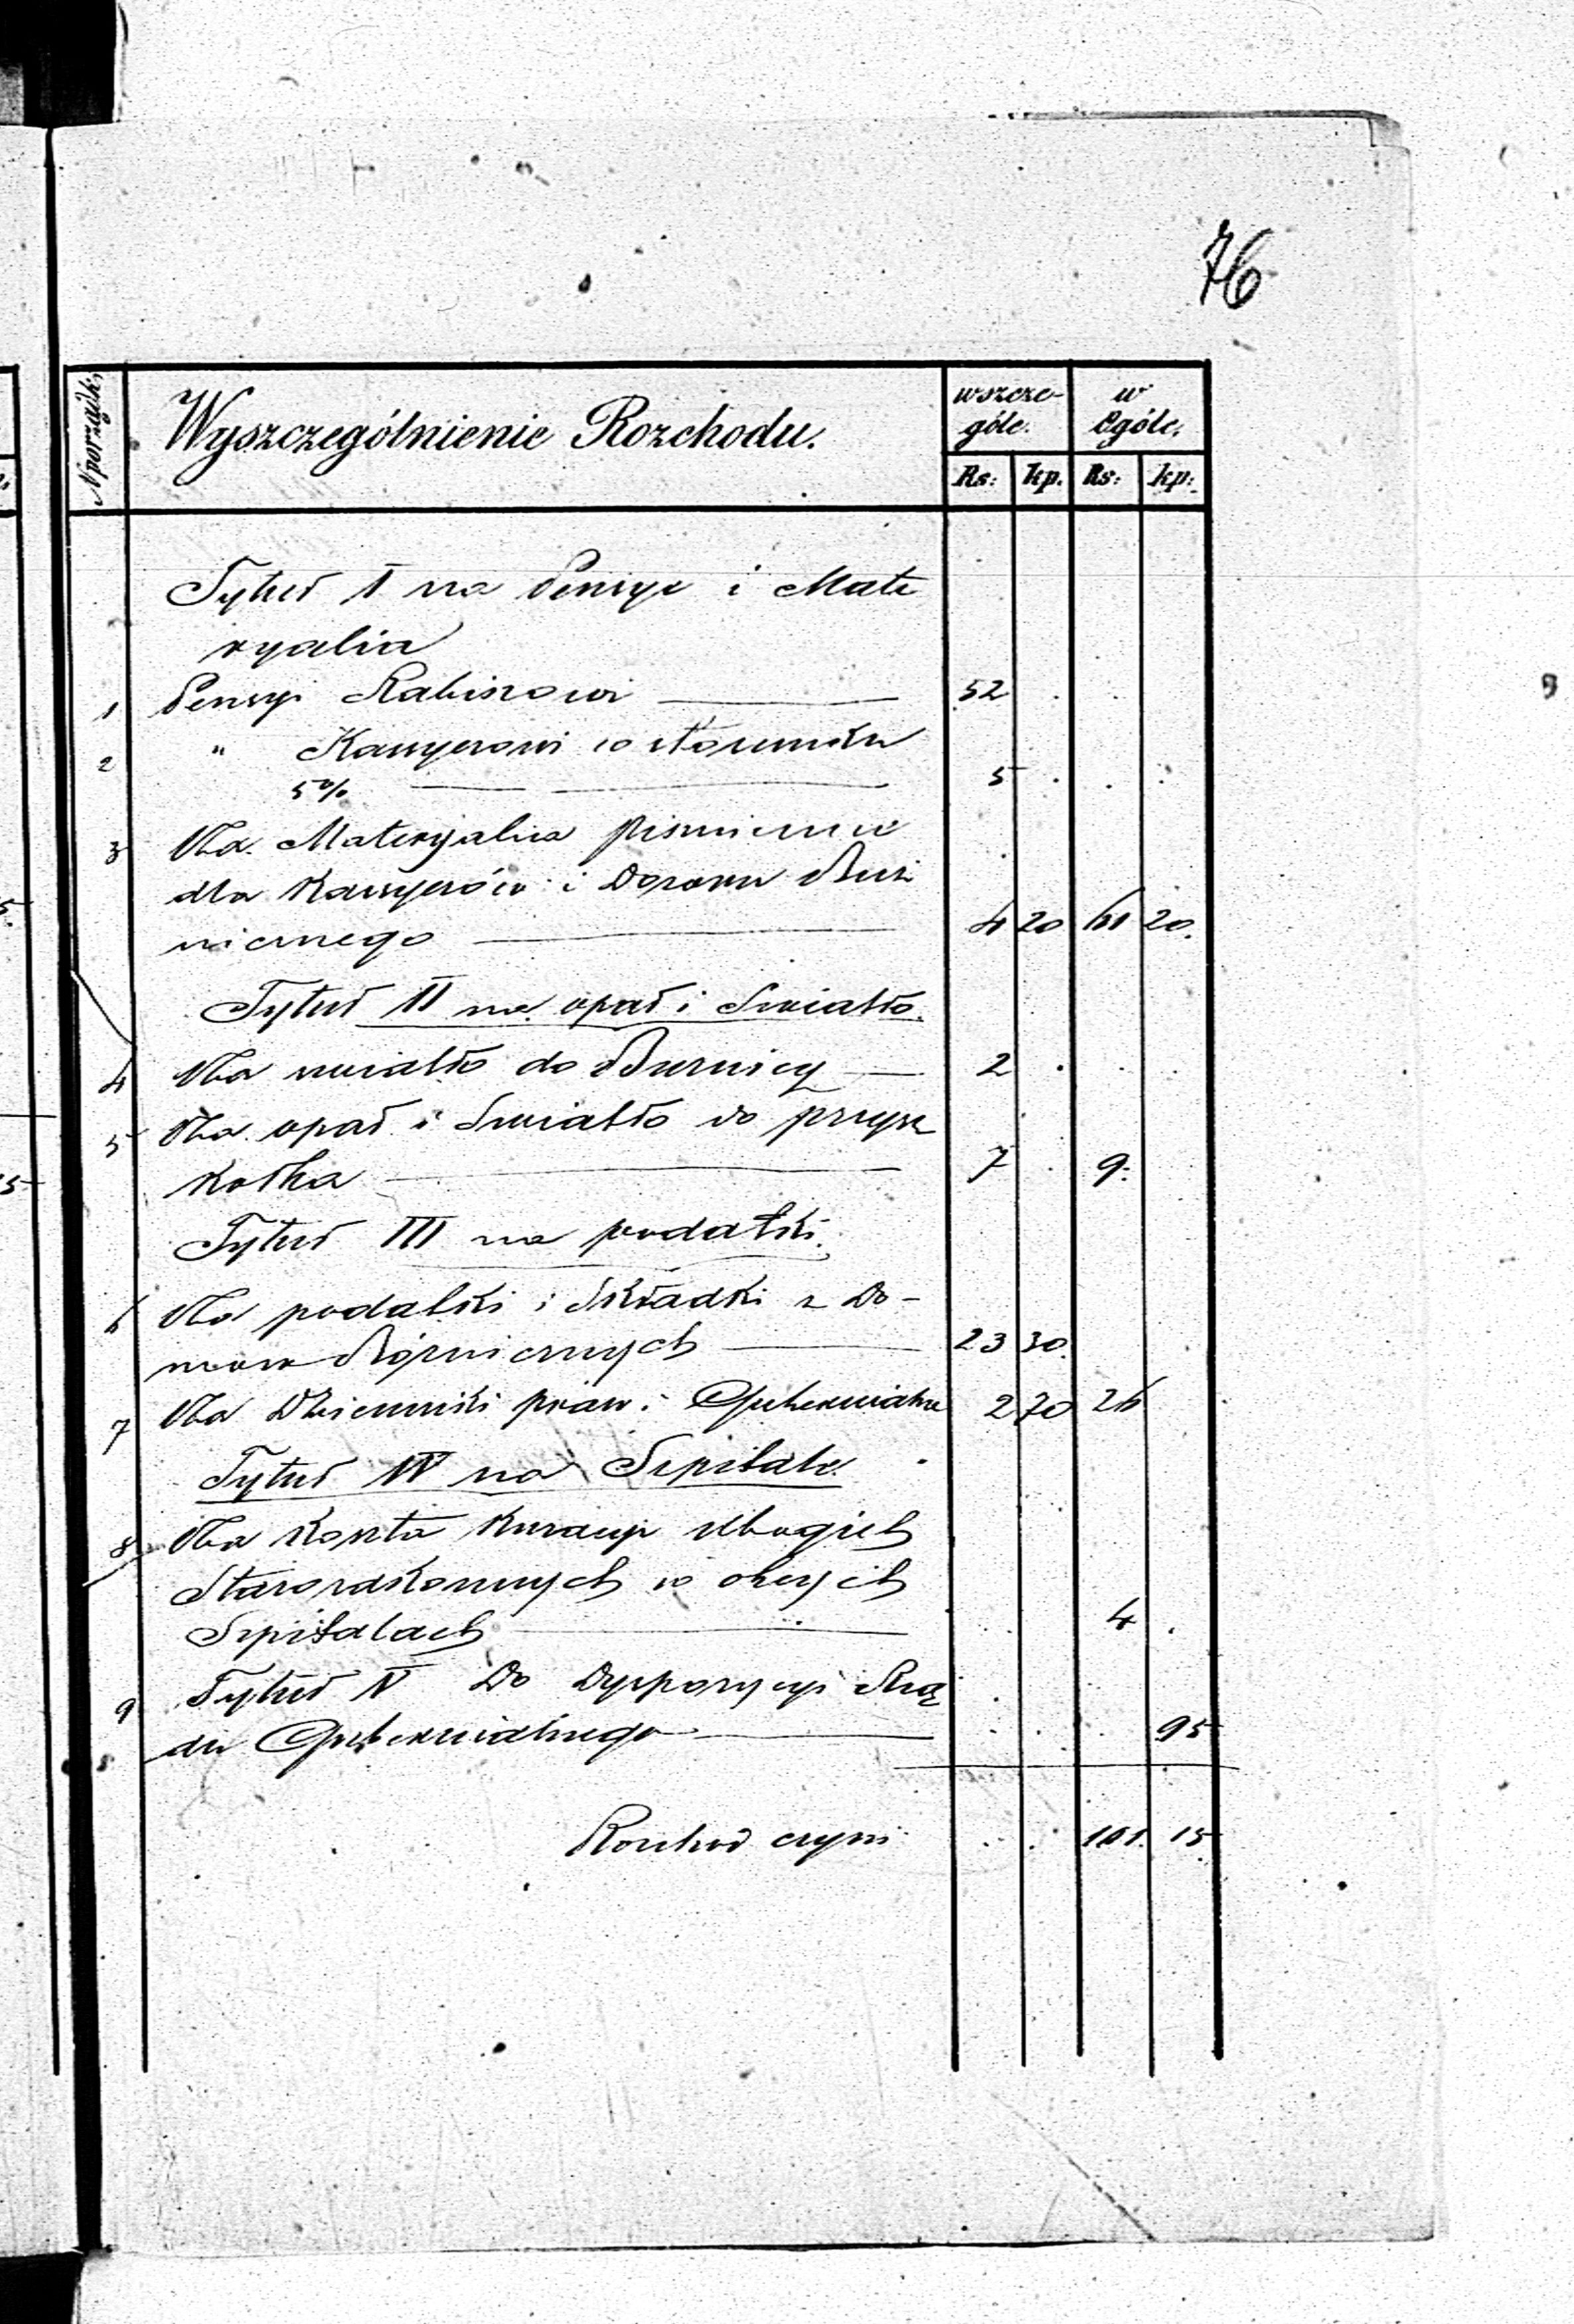 76
N porządk.
Wyszczególnienie Rozchodu.
wszcze-
góle.
w
Ogóle.
Rs: kp. Rs: kp:
Tytuł I na Pensye i Mate
ryalia
1 Pensyi Rabinowi 52
2 " Kassyerowi w stosunku
5% 5
3 Na Materyalia piśmienne
dla Kassyerów i Dozoru Buż
nicznego 4 20 61 20.
Tytuł II na opał i Swiatło
4 Na swiatło do Bużnicy 2
5 Na opał i Swiatło do przysz
kołka 7 9.
Tytuł III na podatki.
6 Na podatki i Składki z Do-
mow Bóżnicznych 23 30.
7 Na Dzienniki praw i Gubernialne 2 70 26
Tytuł IV na Szpitale
8 Na Koszta Kuracyi ubogich
Starozakonnych w obcych
Szpitalach 4
9 Tytuł V Do Dyspozycyi Rzą
du Gubernialnego 95
Rozchod czyni 101. 15